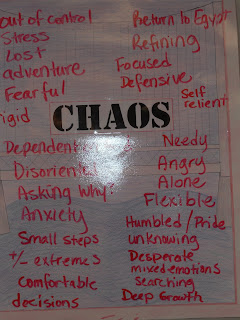 out of control
Stress
Lost
adventure
Fearful
rigid
Return to Egypt
Refining
Focused
Defensive
Self
relient
CHAOS
Dependent
Disoriente
Asking Why?
Anxiety
Small steps
+/- extremes
Comfortable
decisions
Needy
Angry
Alone
Flexible
Humbled/Pride
unknowing
Desperate
mixed emotions
Searching
Deep Growth